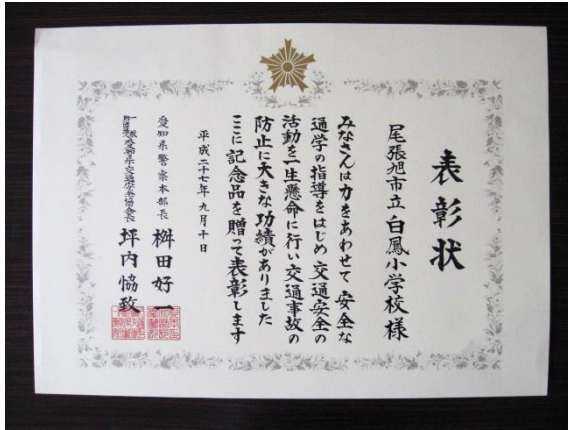 表彰状
尾張旭市立白鳳小学校様
みなさんは力をあわせて安全な
通学の指導をはじめ交通安全の
活動を一生懸命に行い交通事故の
防止に大きな功績がありました
ここに記念品を贈って表彰します
平成二十七年九月十日
愛知県警察本部長 桝田好一
一般財団法人愛知県交通安全協会長 坪内恊致